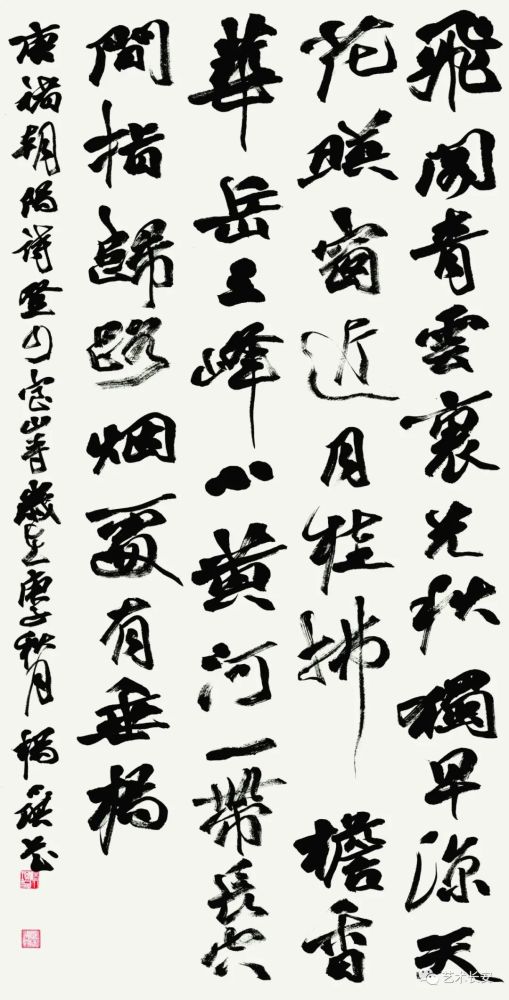 飛閣青雲裏先秋獨早涼天
花暎窗近月桂拂檐香
華岳三峰小黄河一帶長空
間指歸路烟處有垂楊
唐褚朝陽詩登少室山寺歲在庚子秋月楊
艺术长安